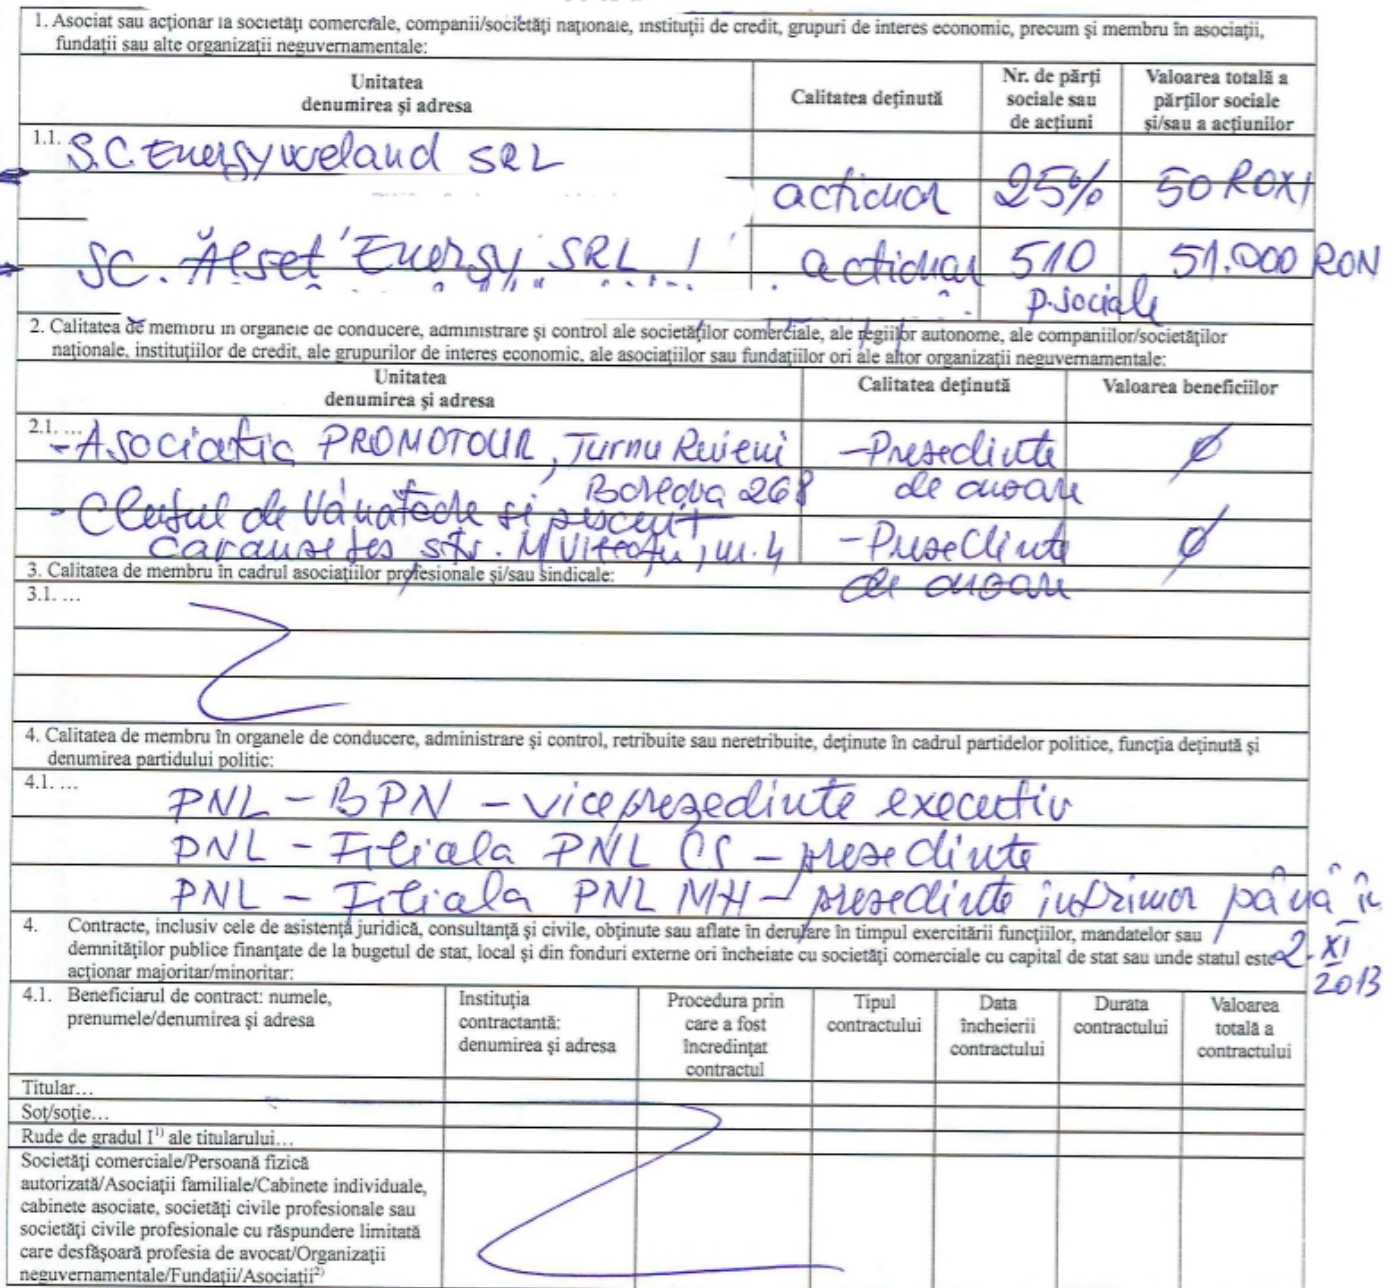 1. Asociat sau acționar la societăți comerciale, companii/societăți naționale, instituții de credit, grupuri de interes economic, precum și membru în asociații,
fundații sau alte organizații neguvernamentale:
Unitatea
denumirea și adresa
Calitatea deținută
Nr. de părți
sociale sau
de acțiuni
Valoarea totală a
părților sociale
și/sau a acțiunilor
1.1. S.C. Energy SRL
actionar 25% 50 RON
SC. Alset Energy SRL actionar 510 51.000 RON
p.sociale
2. Calitatea de membru în organele de conducere, administrare și control ale societăților comerciale, ale regiilor autonome, ale companiilor/societăților
naționale, instituțiilor de credit, ale grupurilor de interes economic, ale asociațiilor sau fundațiilor ori ale altor organizații neguvernamentale:
Unitatea
denumirea și adresa
Calitatea deținută
Valoarea beneficiilor
2.1. ...
- Asociatia PROMOTOUR, Turnu Ruieni - Presedinte ∅
Borlova 268 de onoare
- Clubul de Vânatoare si pescuit
Caransebes str. M Viteazu, nr. 4 - Presedinte ∅
de onoare
3. Calitatea de membru în cadrul asociațiilor profesionale și/sau sindicale:
3.1. ...
4. Calitatea de membru în organele de conducere, administrare și control, retribuite sau neretribuite, deținute în cadrul partidelor politice, funcția deținută și
denumirea partidului politic:
4.1. ...
PNL - BPN - vicepreședinte executiv
PNL - Filiala PNL CS - presedinte
PNL - Filiala PNL MH - presedinte interimar până în
2. XI
2013
4. Contracte, inclusiv cele de asistență juridică, consultanță și civile, obținute sau aflate în derulare în timpul exercitării funcțiilor, mandatelor sau
demnităților publice finanțate de la bugetul de stat, local și din fonduri externe ori încheiate cu societăți comerciale cu capital de stat sau unde statul este
acționar majoritar/minoritar:
4.1. Beneficiarul de contract: numele,
prenumele/denumirea și adresa
Instituția
contractantă:
denumirea și adresa
Procedura prin
care a fost
încredințat
contractul
Tipul
contractului
Data
încheierii
contractului
Durata
contractului
Valoarea
totală a
contractului
Titular...
Soț/soție...
Rude de gradul I¹⁾ ale titularului...
Societăți comerciale/Persoană fizică
autorizată/Asociații familiale/Cabinete individuale,
cabinete asociate, societăți civile profesionale sau
societăți civile profesionale cu răspundere limitată
care desfășoară profesia de avocat/Organizații
neguvernamentale/Fundații/Asociații²⁾